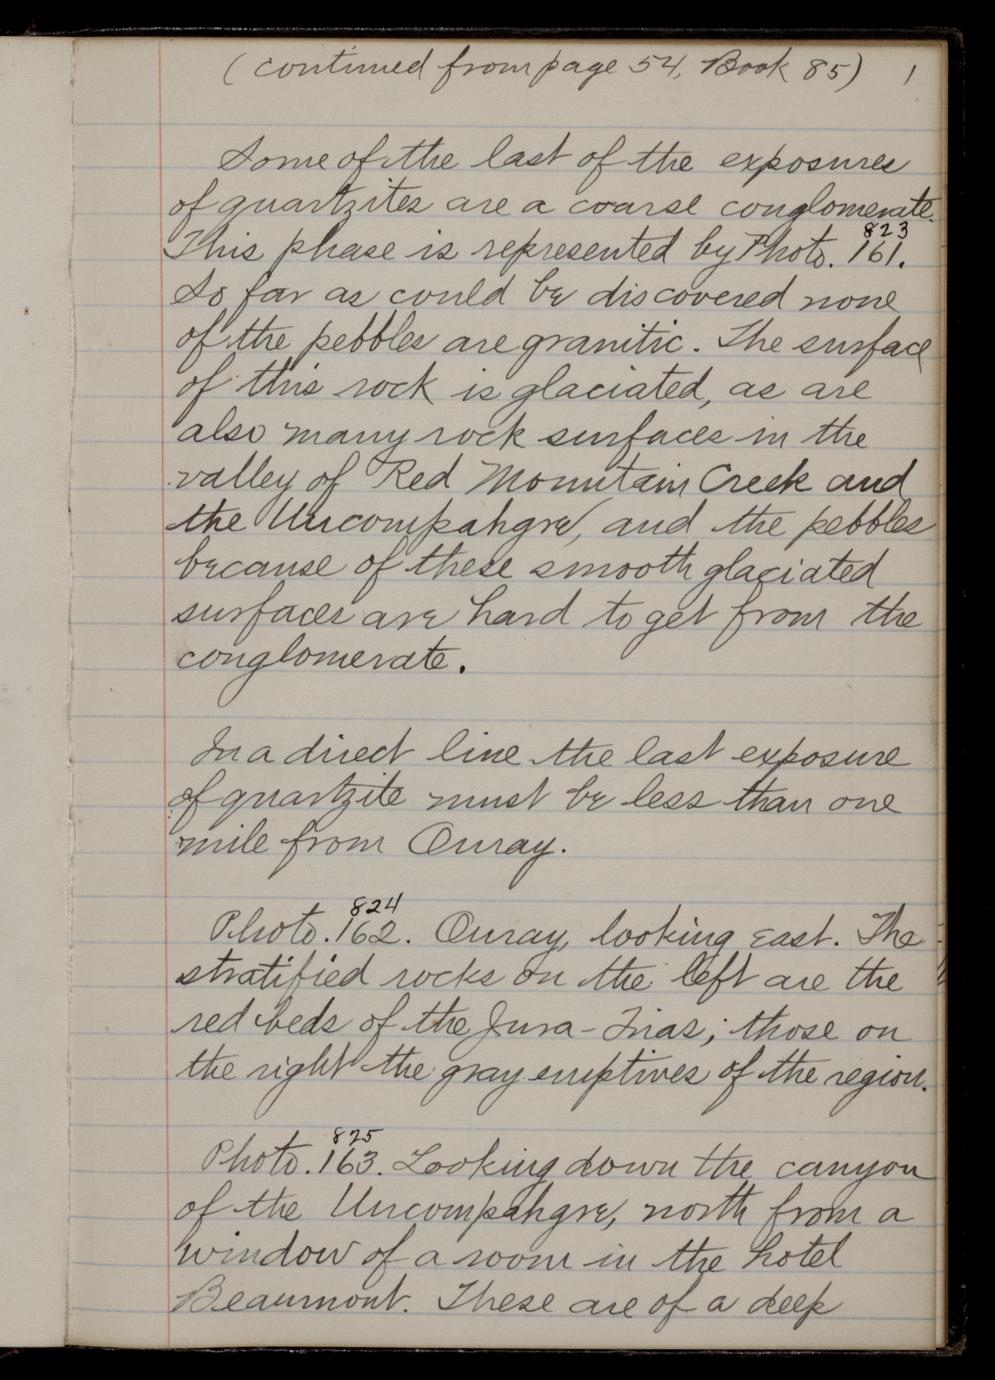 (continued from page 54, Book 85) 1
Some of the last of the exposures
of quartzites are a coarse conglomerate.
823
This phase is represented by Photo. 161.
So far as could be discovered none
of the pebbles are granitic. The surface
of this rock is glaciated, as are
also many rock surfaces in the
valley of Red Mountain Creek and
the Uncompahgre, and the pebbles
because of these smooth glaciated
surfaces are hard to get from the
conglomerate.
In a direct line the last exposure
of quartzite must be less than one
mile from Ouray.
824
Photo. 162. Ouray, looking east. The
stratified rocks on the left are the
red beds of the Jura-Trias; those on
the right the gray eruptives of the region.
825
Photo. 163. Looking down the canyon
of the Uncompahgre, north from a
window of a room in the hotel
Beaumont. These are of a deep